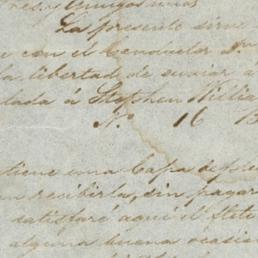 res y amigos mios
La presente sirve
e con el Conductor Dn
la libertad de enviar a
lada á Stephen Willia
No. 16 B
tiene una Capa de pie
en recibirla, sin pagar
satisfaré aqui el flete
alguna buena ocasion